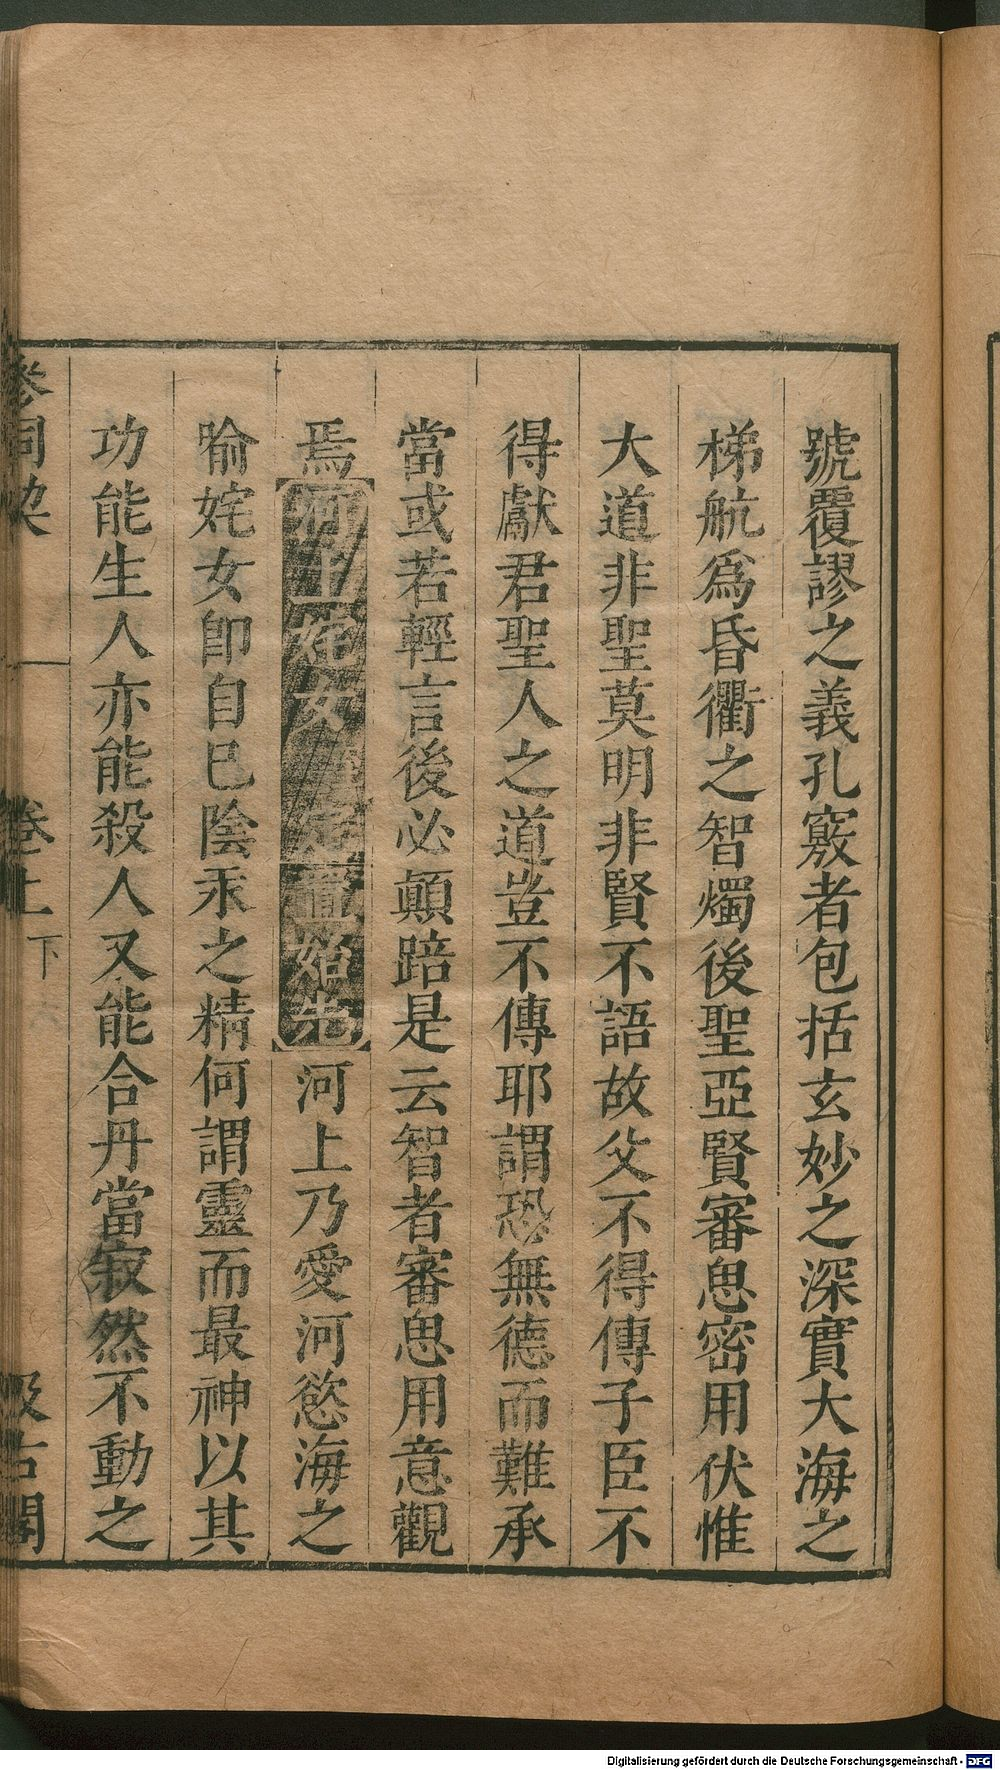 號覆謬之義孔竅者包括玄妙之深實大海之
梯航爲昏衢之智燭後聖亞賢審思密用伏惟
大道非聖莫明非賢不語故父不得傳子臣不
得獻君聖人之道豈不傳耶謂恐無德而難承
當或若輕言後必顛踣是云智者審思用意觀
焉河上姹女章第 始先河上乃愛河慾海之
喻姹女卽自巳陰汞之精何謂靈而最神以其
功能生人亦能殺人又能合丹當寂然不動之
參同 卷上 下 汲古閣
Digitalisierung gefördert durch die Deutsche Forschungsgemeinschaft - DFG